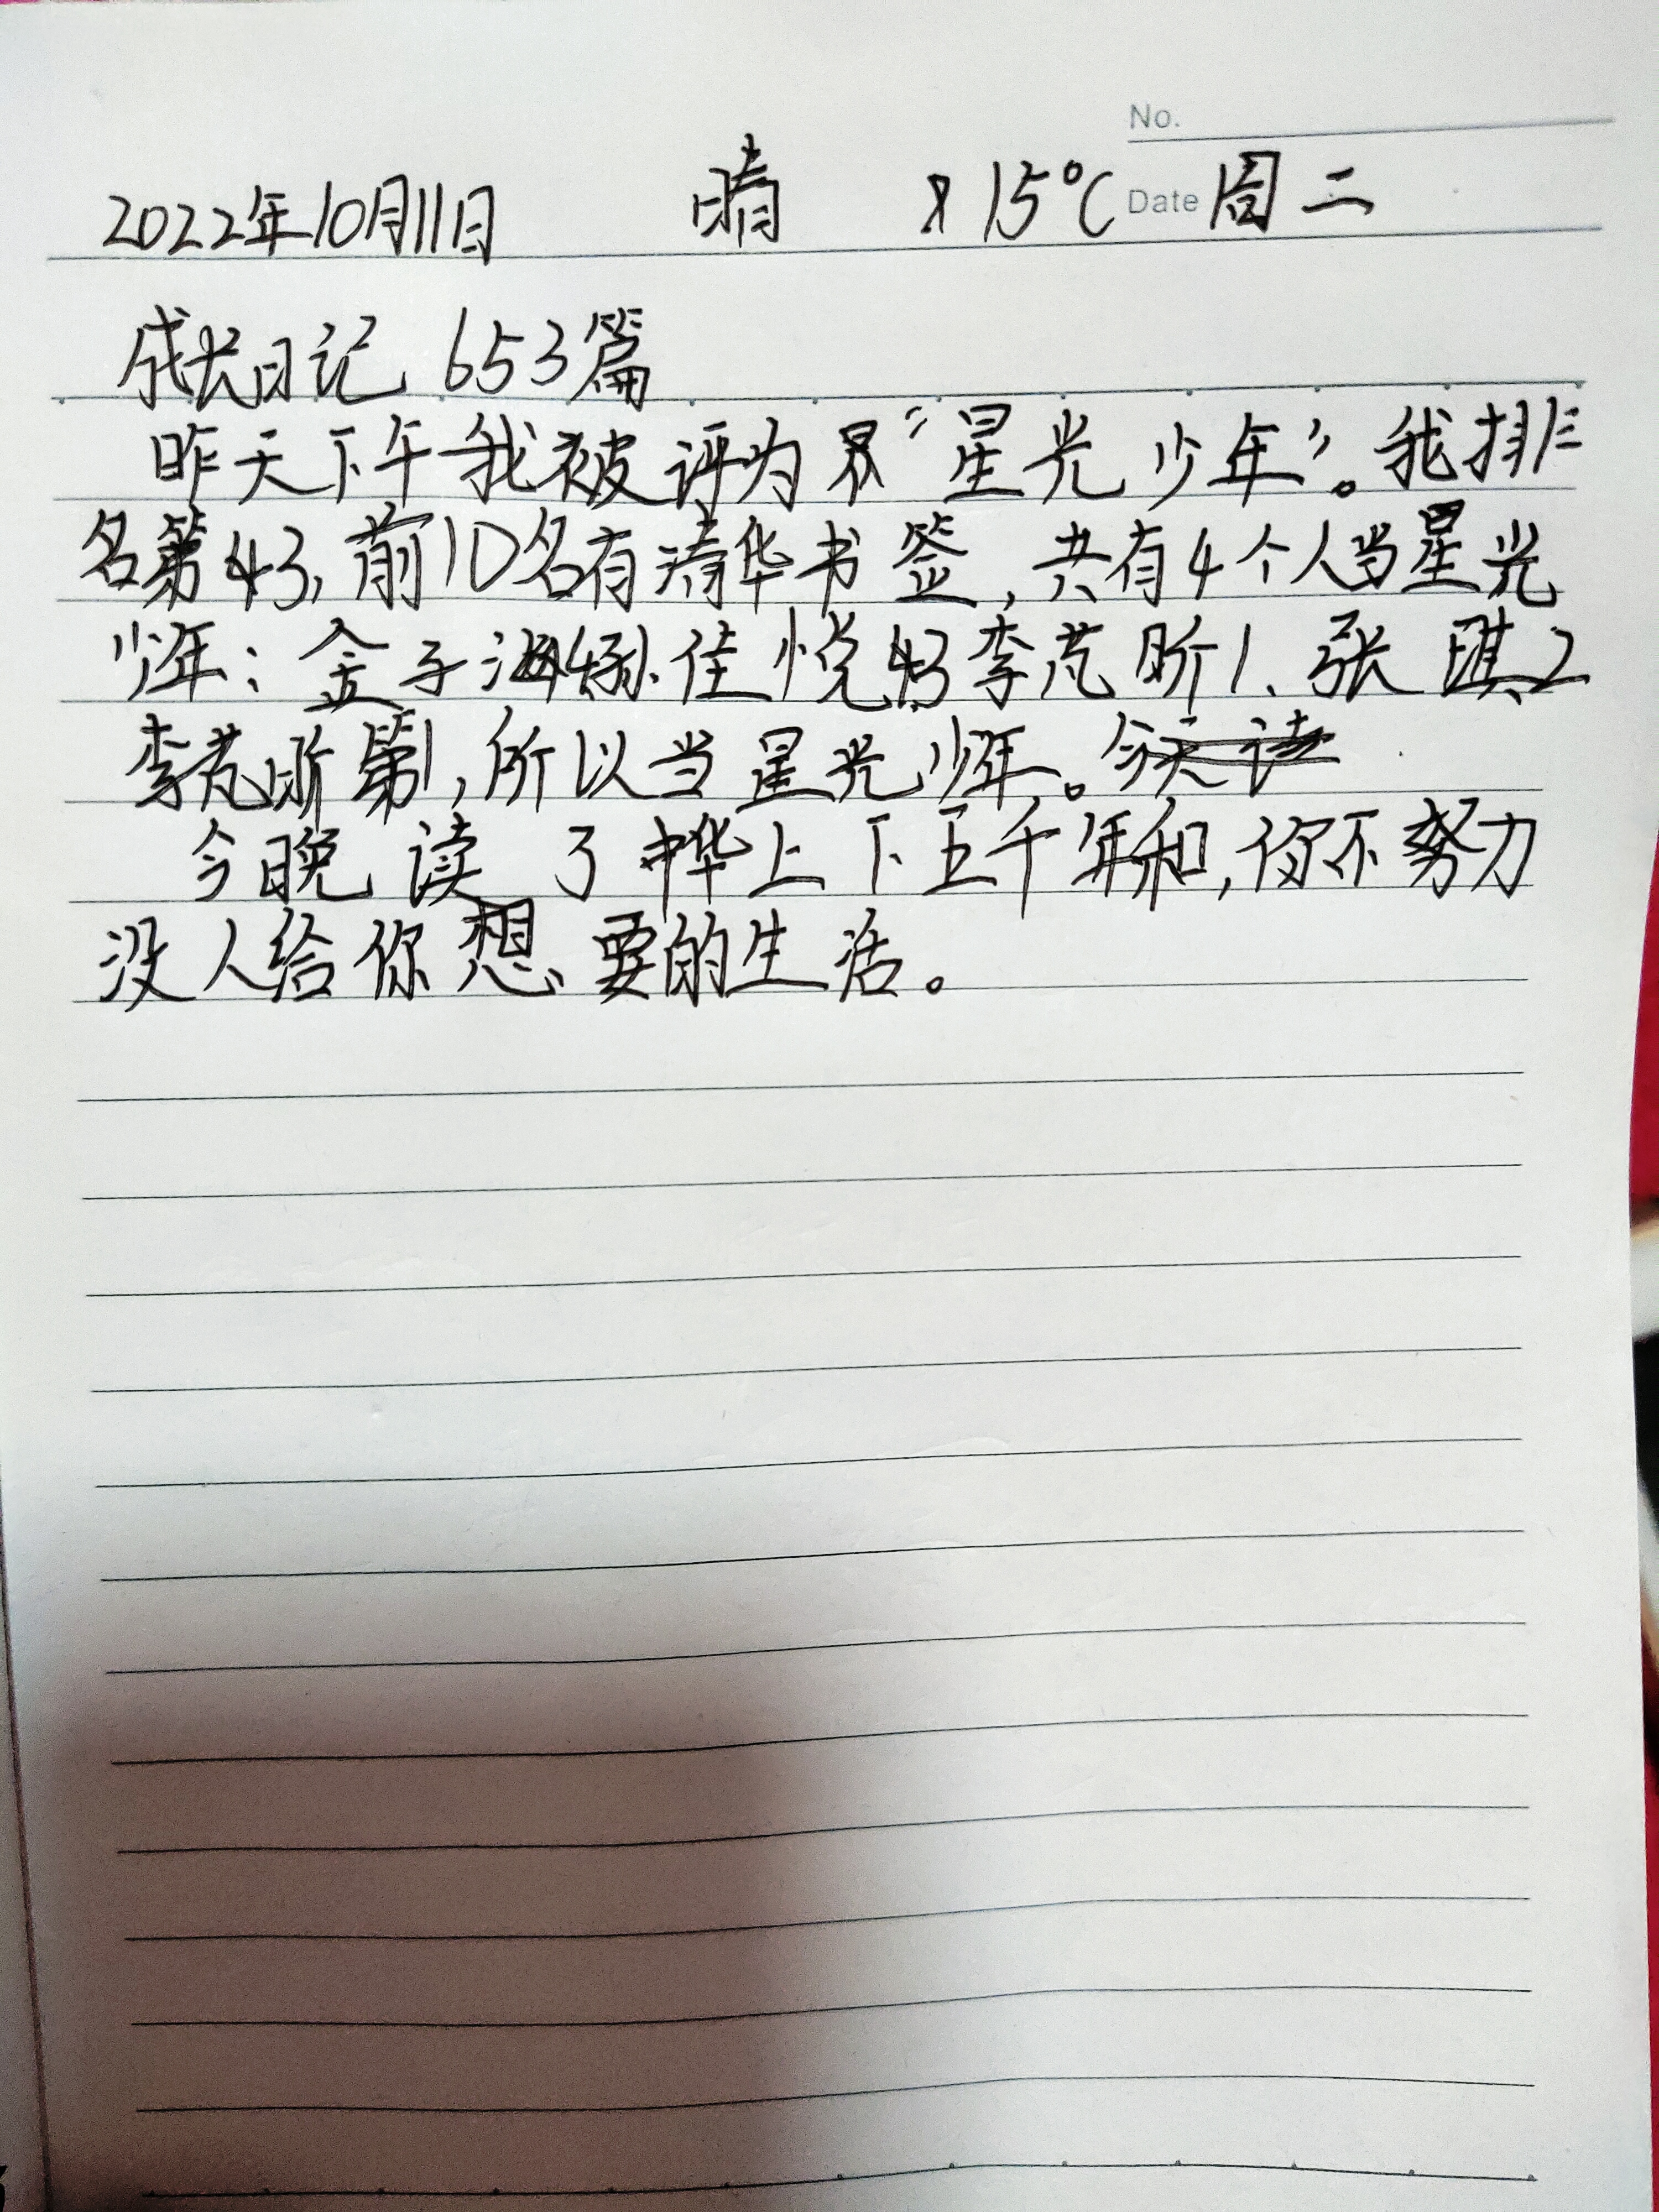 No.
2022年10月11日 晴 15℃ Date 周二
成长日记 653篇
昨天下午我被评为 "星光少年"。我排
名第43,前10名有清华书签,共有4个人当星光
少年:金子海4孙佳悦43李芃昕1、张琪2
李芃昕第1,所以当星光少年。今天读
今晚读了中华上下五千年和,你不努力
没人给你想要的生活。